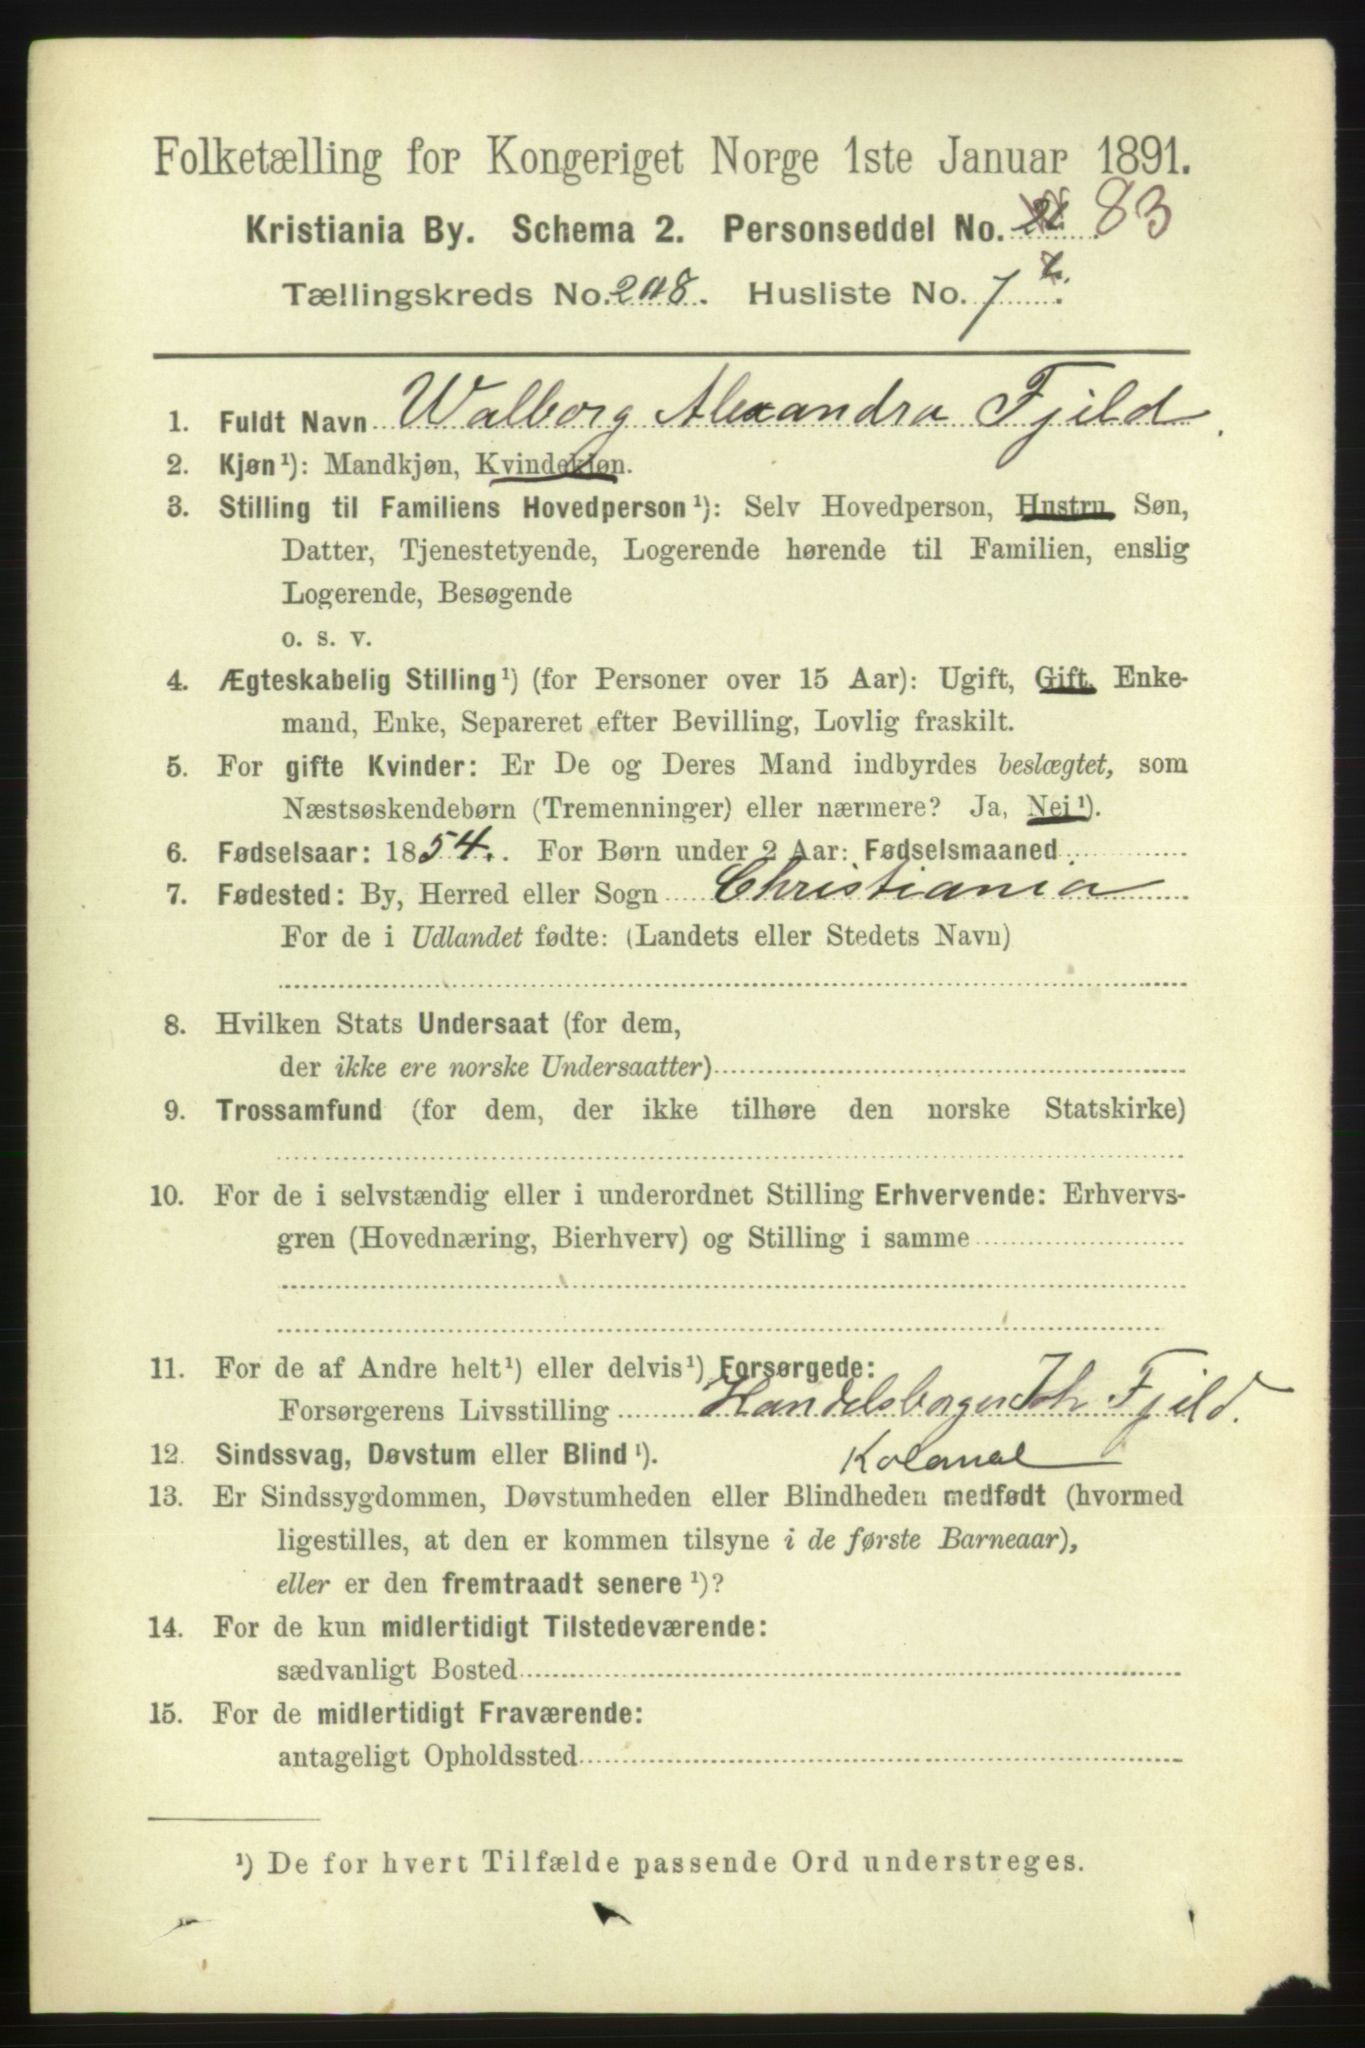 Folketælling for Kongeriget Norge 1ste Januar 1891.
Kristiania By. Schema 2. Personseddel No. 83
Tællingskreds No. 208. Husliste No. 7
1. Fuldt Navn Walborg Alexandra Fjeld.
2. Kjøn¹): Mandkjøn, Kvindekjøn.
3. Stilling til Familiens Hovedperson¹): Selv Hovedperson, Hustru, Søn,
Datter, Tjenestetyende, Logerende hørende til Familien, enslig
Logerende, Besøgende
o. s. v.
4. Ægteskabelig Stilling¹) (for Personer over 15 Aar): Ugift, Gift, Enke-
mand, Enke, Separeret efter Bevilling, Lovlig fraskilt.
5. For gifte Kvinder: Er De og Deres Mand indbyrdes beslægtet, som
Næstsøskendebørn (Tremenninger) eller nærmere? Ja, Nei¹).
6. Fødselsaar: 1854. For Børn under 2 Aar: Fødselsmaaned
7. Fødested: By, Herred eller Sogn Christiania
For de i Udlandet fødte: (Landets eller Stedets Navn)
8. Hvilken Stats Undersaat (for dem,
der ikke ere norske Undersaatter)
9. Trossamfund (for dem, der ikke tilhøre den norske Statskirke)
10. For de i selvstændig eller i underordnet Stilling Erhvervende: Erhvervs-
gren (Hovednæring, Bierhverv) og Stilling i samme
11. For de af Andre helt¹) eller delvis¹) Forsørgede:
Forsørgerens Livsstilling Handelsborger Joh Fjeld.
12. Sindssvag, Døvstum eller Blind¹). Kolonial
13. Er Sindssygdommen, Døvstumheden eller Blindheden medfødt (hvormed
ligestilles, at den er kommen tilsyne i de første Barneaar),
eller er den fremtraadt senere¹)?
14. For de kun midlertidigt Tilstedeværende:
sædvanligt Bosted
15. For de midlertidigt Fraværende:
antageligt Opholdssted
¹) De for hvert Tilfælde passende Ord understreges.